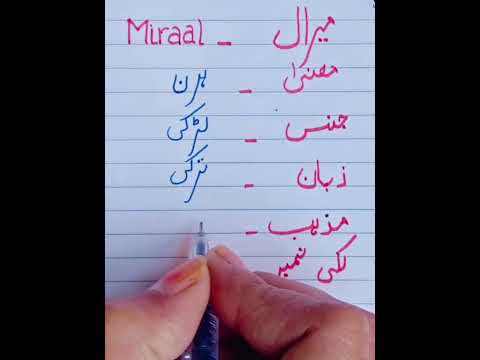 میرال - Miraal
معنی - ہرن
جنس - لڑکی
زبان - ترکی
مذہب -
لکی نمبر